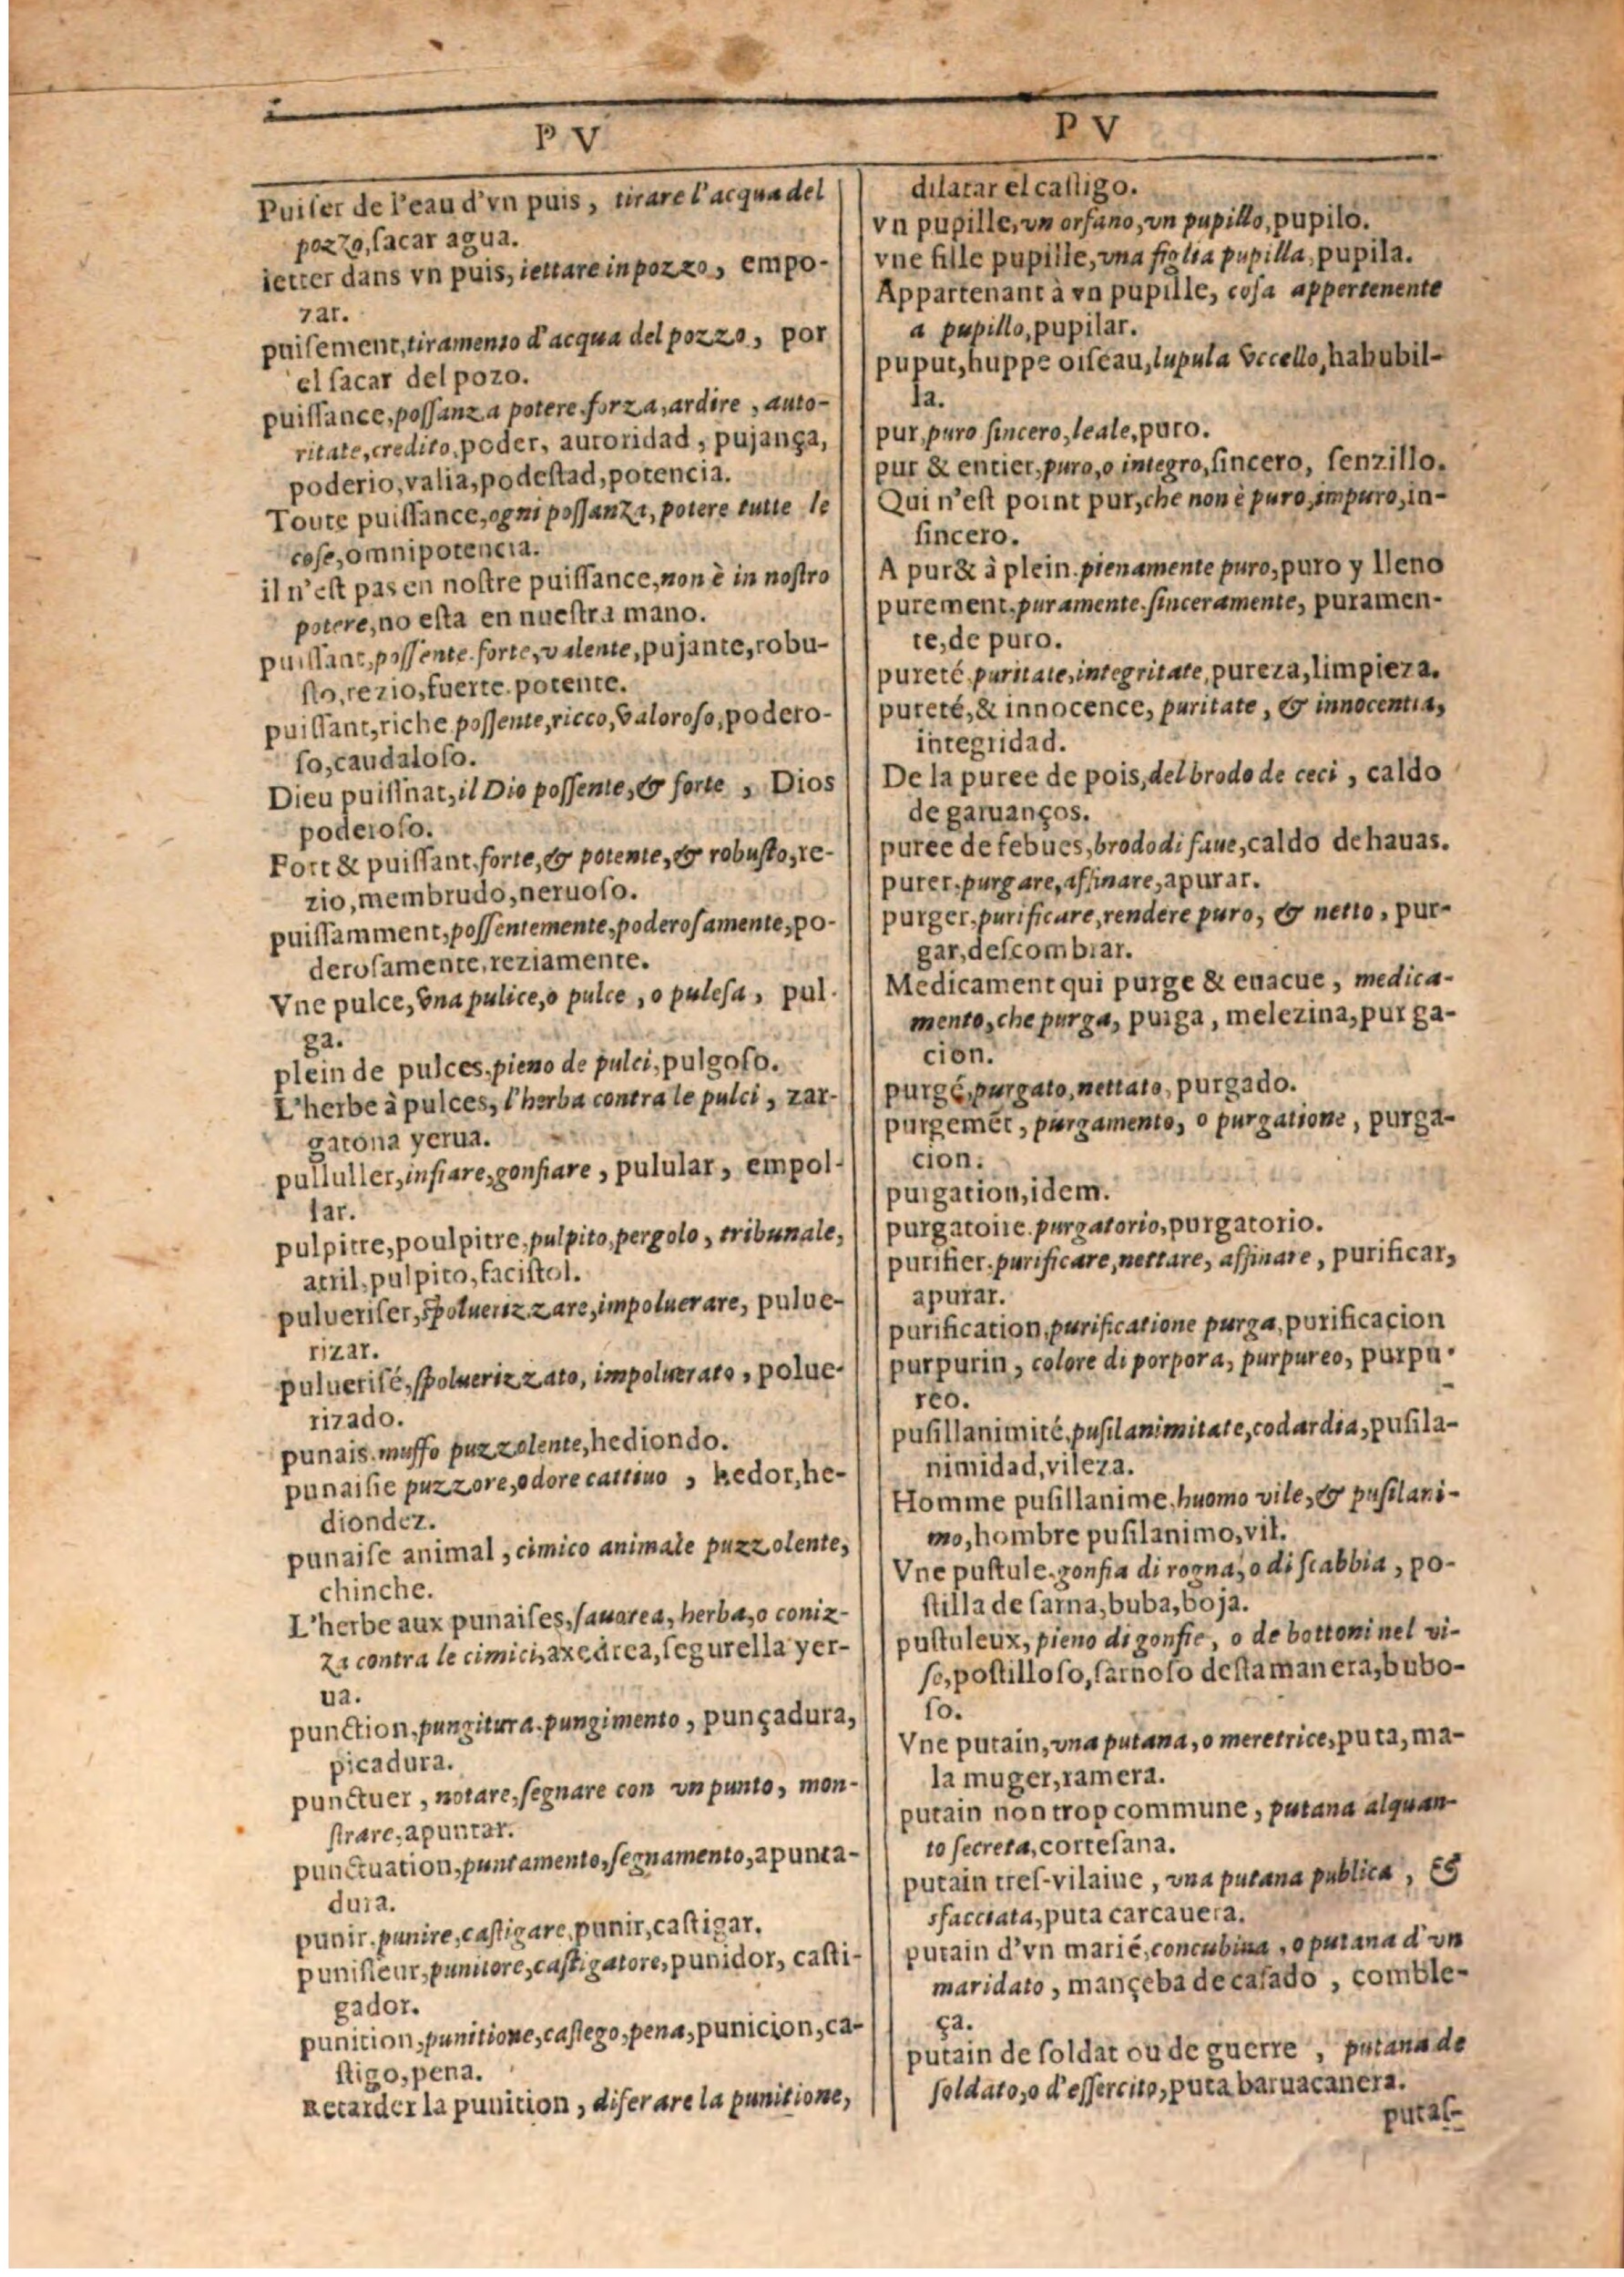 P V
Puiſer de l'eau d'vn puis, tirare l'acqua del
pozzo, ſacar agua.
ietter dans vn puis, iettare in pozzo, empo-
zar.
puiſement, tiramento d'acqua del pozzo, por
el ſacar del pozo.
puiſſance, poſſanza potere forza, ardire, auto-
ritate, credito, poder, autoridad, pujança,
poderio, valia, podeſtad, potencia.
Toute puiſſance, ogni poſſanza, potere tutte le
coſe, omnipotencia.
il n'eſt pas en noſtre puiſſance, non è in noſtro
potere, no eſta en nueſtra mano.
puiſſant, poſſente. forte, valente, pujante, robu-
ſto, rezio, fuerte. potente.
puiſſant, riche poſſente, ricco, valoroſo, podero-
ſo, caudaloſo.
Dieu puiſſnat, il Dio poſſente, & forte, Dios
poderoſo.
Fort & puiſſant, forte, & potente, & robuſto, re-
zio, membrudo, neruoſo.
puiſſamment, poſſentemente, poderoſamente, po-
deroſamente, reziamente.
Vne pulce, vna pulice, o pulce, o puleſa, pul-
ga.
plein de pulces, pieno de pulci, pulgoſo.
L'herbe à pulces, l'herba contra le pulci, zar-
gatona yerua.
pulluller, infiare, gonfiare, pulular, empol-
lar.
pulpitre, poulpitre, pulpito, pergolo, tribunale,
atril, pulpito, faciſtol.
pulueriſer, ſpoluerizzare, impoluerare, pulue-
rizar.
pulueriſé, ſpoluerizzato, impoluerato, polue-
rizado.
punais. muffo puzzolente, hediondo.
punaiſie puzzore, odore cattiuo, hedor, he-
diondez.
punaiſe animal, cimico animale puzzolente,
chinche.
L'herbe aux punaiſes, ſauorea, herba, o coniz-
za contra le cimici, axedrea, ſegurella yer-
ua.
punction, pungitura. pungimento, punçadura,
picadura.
punctuer, notare, ſegnare con vn punto, mon-
ſtrare, apuntar.
punctuation, puntamento, ſegnamento, apunta-
dura.
punir. punire, caſtigare, punir, caſtigar.
puniſſeur, punitore, caſtigatore, punidor, caſti-
gador.
punition, punitione, caſtego, pena, punicion, ca-
ſtigo, pena.
Retarder la punition, diferare la punitione,
P V
dilatar el caſtigo.
vn pupille, vn orfano, vn pupillo, pupilo.
vne fille pupille, vna figlia pupilla, pupila.
Appartenant à vn pupille, coſa appertenente
a pupillo, pupilar.
puput, huppe oiſeau, lupula vccello, habubil-
la.
pur, puro ſincero, leale, puro.
pur & entier, puro, o integro, ſincero, ſenzillo.
Qui n'eſt point pur, che non è puro, impuro, in-
ſincero.
A pur & à plein. pienamente puro, puro y lleno
purement. puramente. ſinceramente, puramen-
te, de puro.
pureté, puritate, integritate, pureza, limpieza.
pureté, & innocence, puritate, & innocentia,
integridad.
De la puree de pois, del brodo de ceci, caldo
de garuanços.
puree de febues, brodo di faue, caldo de hauas.
purer. purgare, affinare, apurar.
purger, purificare, rendere puro, & netto, pur-
gar, deſcombrar.
Medicament qui purge & euacue, medica-
mento, che purga, purga, melezina, purga-
cion.
purgé, purgato, nettato, purgado.
purgemẽt, purgamento, o purgatione, purga-
cion.
purgation, idem.
purgatoire. purgatorio, purgatorio.
purifier. purificare, nettare, affinare, purificar,
apurar.
purification, purificatione purga, purificacion
purpurin, colore di porpora, purpureo, purpu-
reo.
puſillanimité, puſilanimitate, codardia, puſila-
nimidad, vileza.
Homme puſillanime, huomo vile, & puſilani-
mo, hombre puſilanimo, vil.
Vne puſtule, gonfia di rogna, o di ſcabbia, po-
ſtilla de ſarna, buba, boja.
puſtuleux, pieno di gonfie, o de bottoni nel vi-
ſo, poſtilloſo, ſarnoſo deſta manera, bubo-
ſo.
Vne putain, vna putana, o meretrice, puta, ma-
la muger, ramera.
putain non trop commune, putana alquan-
to ſecreta, corteſana.
putain treſ-vilaiue, vna putana publica, &
sfacciata, puta carcauera.
putain d'vn marié, concubina, o putana d'vn
maridato, mançeba de caſado, comble-
ça.
putain de ſoldat ou de guerre, putana de
ſoldato, o d'eſſercito, puta baruacanera.
putaſ-